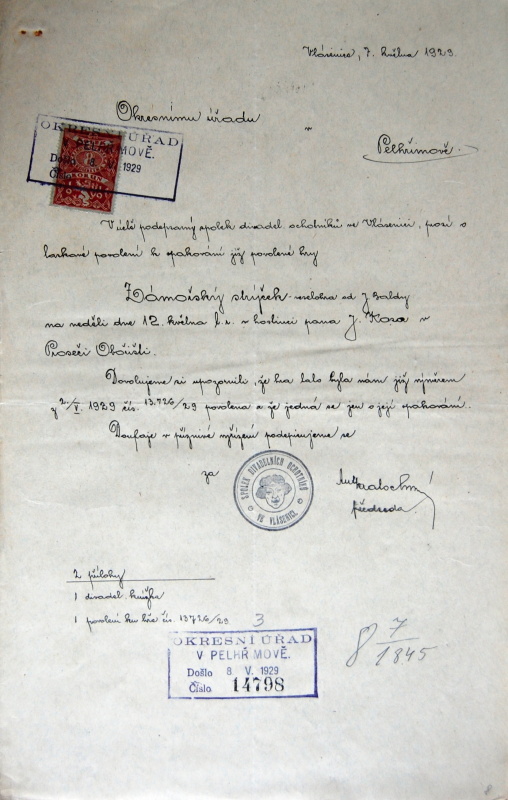 Vlásenice, 7. května 1929.
Okresnímu úřadu
v
Pelhřimově.
OKRESNÍ ÚŘAD
V PELHŘIMOVĚ.
Došlo 8. V. 1929
Číslo
V úctě podepsaný spolek divadel. ochotníků ve Vlásenici, prosí o
laskavé povolení k opakování již povolené hry
"Zámořský strýček" veselohra od J. Baldy
na neděli dne 12. května t. r. v hostinci pana J. Kosa v
Proseči Obořišti.
Dovolujeme si upozorniti, že hra tato byla nám již výnosem
z 2/V. 1929 čís. 13.726/29 povolena a že jedná se jen o její opakování.
Doufaje v příznivé vyřízení podepisujeme se
za
SPOLEK DIVADELNÍCH OCHOTNÍKŮ
VE VLÁSENICI.
předseda.
2 přílohy
1 divadel. knížka
1 povolení ku hře čís. 13726/29
3
OKRESNÍ ÚŘAD
V PELHŘIMOVĚ.
Došlo 8. V. 1929
Číslo 14798
8 7/1845
8